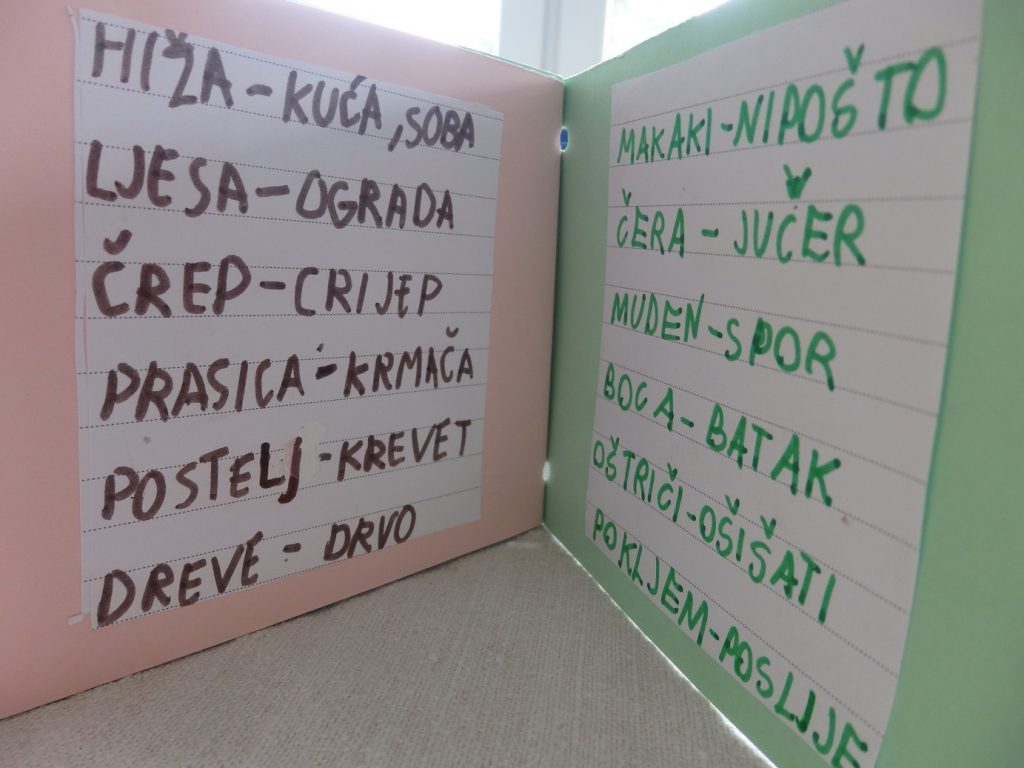 HIŽA - KUĆA, SOBA
LJESA - OGRADA
ČREP - CRIJEP
PRASICA - KRMAČA
POSTELJ - KREVET
DREVE - DRVO
MAKAKI - NIPOŠTO
ČERA - JUČER
MUDEN - SPOR
BOCA - BATAK
OŠTRIČI - OŠIŠATI
POKLJEM - POSLIJE